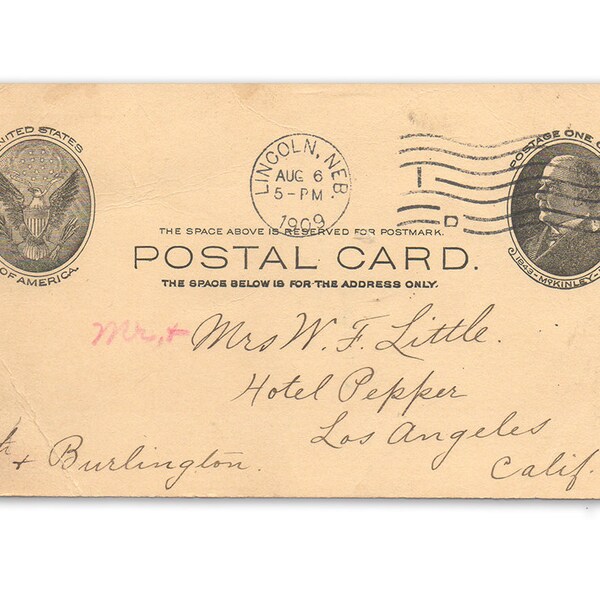 UNITED STATES
OF AMERICA.
LINCOLN, NEB.
AUG 6
5-PM
1909
I
D
POSTAGE ONE
1843-McKINLEY-
THE SPACE ABOVE IS RESERVED FOR POSTMARK.
POSTAL CARD.
THE SPACE BELOW IS FOR THE ADDRESS ONLY.
Mr, + Mrs W. F. Little.
Hotel Pepper
Los Angeles
Calif.
+ Burlington.